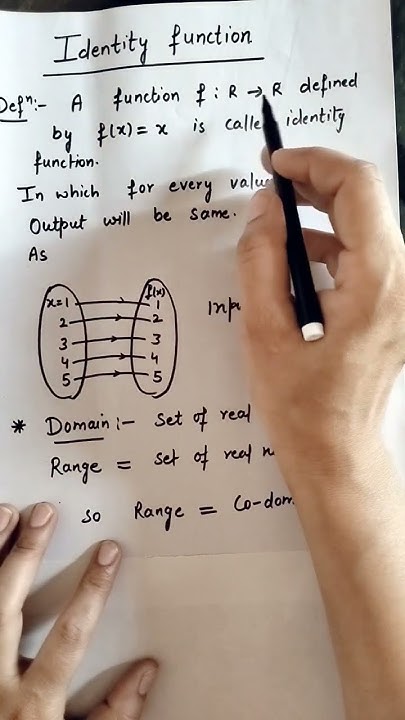 Identity function
Defⁿ:- A function f : R → R defined
by f(x) = x is called identity
function.
In which for every
Output will be same.
As
x=1 f(x) 1
2 2
3 3
4 4
5 5
* Domain :- Set of real
Range = set of real
so Range =